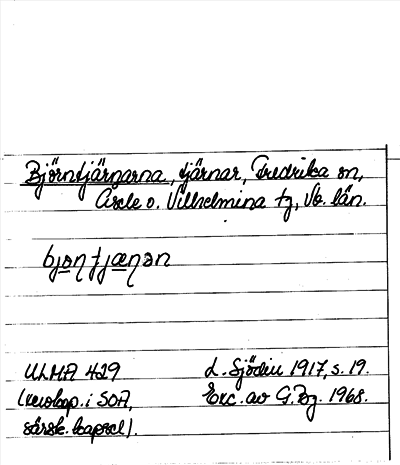 Björntjärnarna, tjärnar, Fredrika sn,
Åsele o. Vilhelmina tg, Vb. län.
bjɷṇtjæṇən
ULMA 429
(renskap. i SOA,
särsk. kapsel).
L. Sjödin 1917, s. 19.
Exc. av G. Bg. 1968.